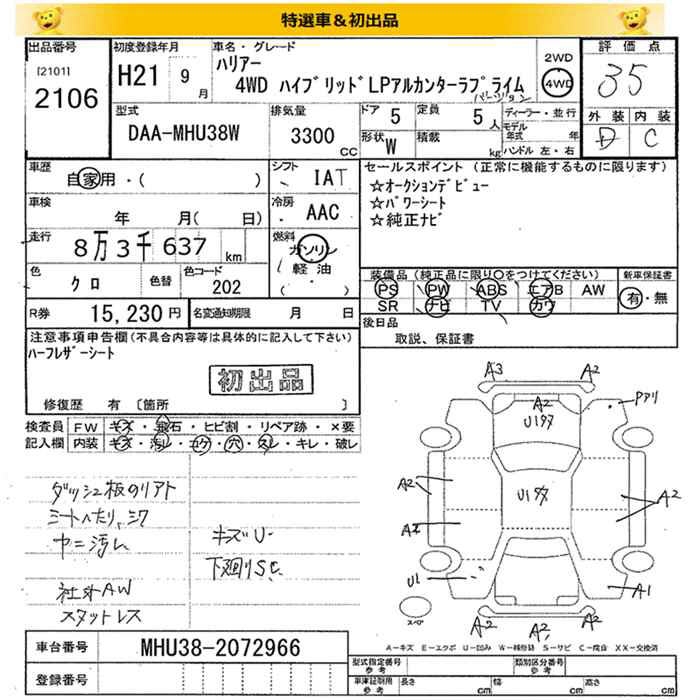 特選車＆初出品
出品番号 [2101] 2106
初度登録年月 H21 9月
車名・グレード ハリアー
4WD ハイブリッドLPアルカンターラプライム
バージョン
2WD
4WD
評価点 35
外装 D 内装 C
型式 DAA-MHU38W
排気量 3300 CC
ドア 5
定員 5人
形状 W
積載 kg
ディーラー・並行
モデル年式 年
ハンドル 左・右
車歴 自家用・( )
シフト IAT
セールスポイント (正常に機能するものに限ります)
☆オークションデビュー
☆パワーシート
☆純正ナビ
車検 年 月(日)
冷房 AAC
走行 8万3千637 km
燃料 ガソリン
軽油
色 クロ 色替 色コード 202
装備品 (純正品に限り○をつけてください) 新車保証書
PS PW ABS エアB AW
SR ナビ TV カワ
有・無
R券 15,230円 名変通知期限 月 日
後日品 取説、保証書
注意事項申告欄(不具合内容等は具体的に記入して下さい)
ハーフレザーシート
初出品
修復歴 有 〔箇所 〕
検査員記入欄 FW キズ・飛石・ヒビ割・リペア跡・×要
内装 キズ・汚レ・コゲ・穴・スレ・キレ・破レ
ダッシュ板のリアト
シートヘたり、シワ
中ニ汚レ
社外AW
スタットレス
キズU-
下廻りSC
A3 A2
A2
U1タタ
Pアリ
A2
U1タタ
A2
A2
U1
A1
A2 A2 A2
スペア
A-キズ E-エクボ U-凹み W-補修跡 S-サビ C-腐食 XX-交換済
車台番号 MHU38-2072966
登録番号
型式指定番号 参考 類別区分番号 参考
車庫証明用 参考 長さ cm 幅 cm 高さ cm